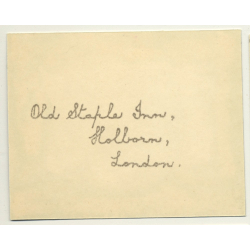 Old Staple Inn,
Holborn,
London.